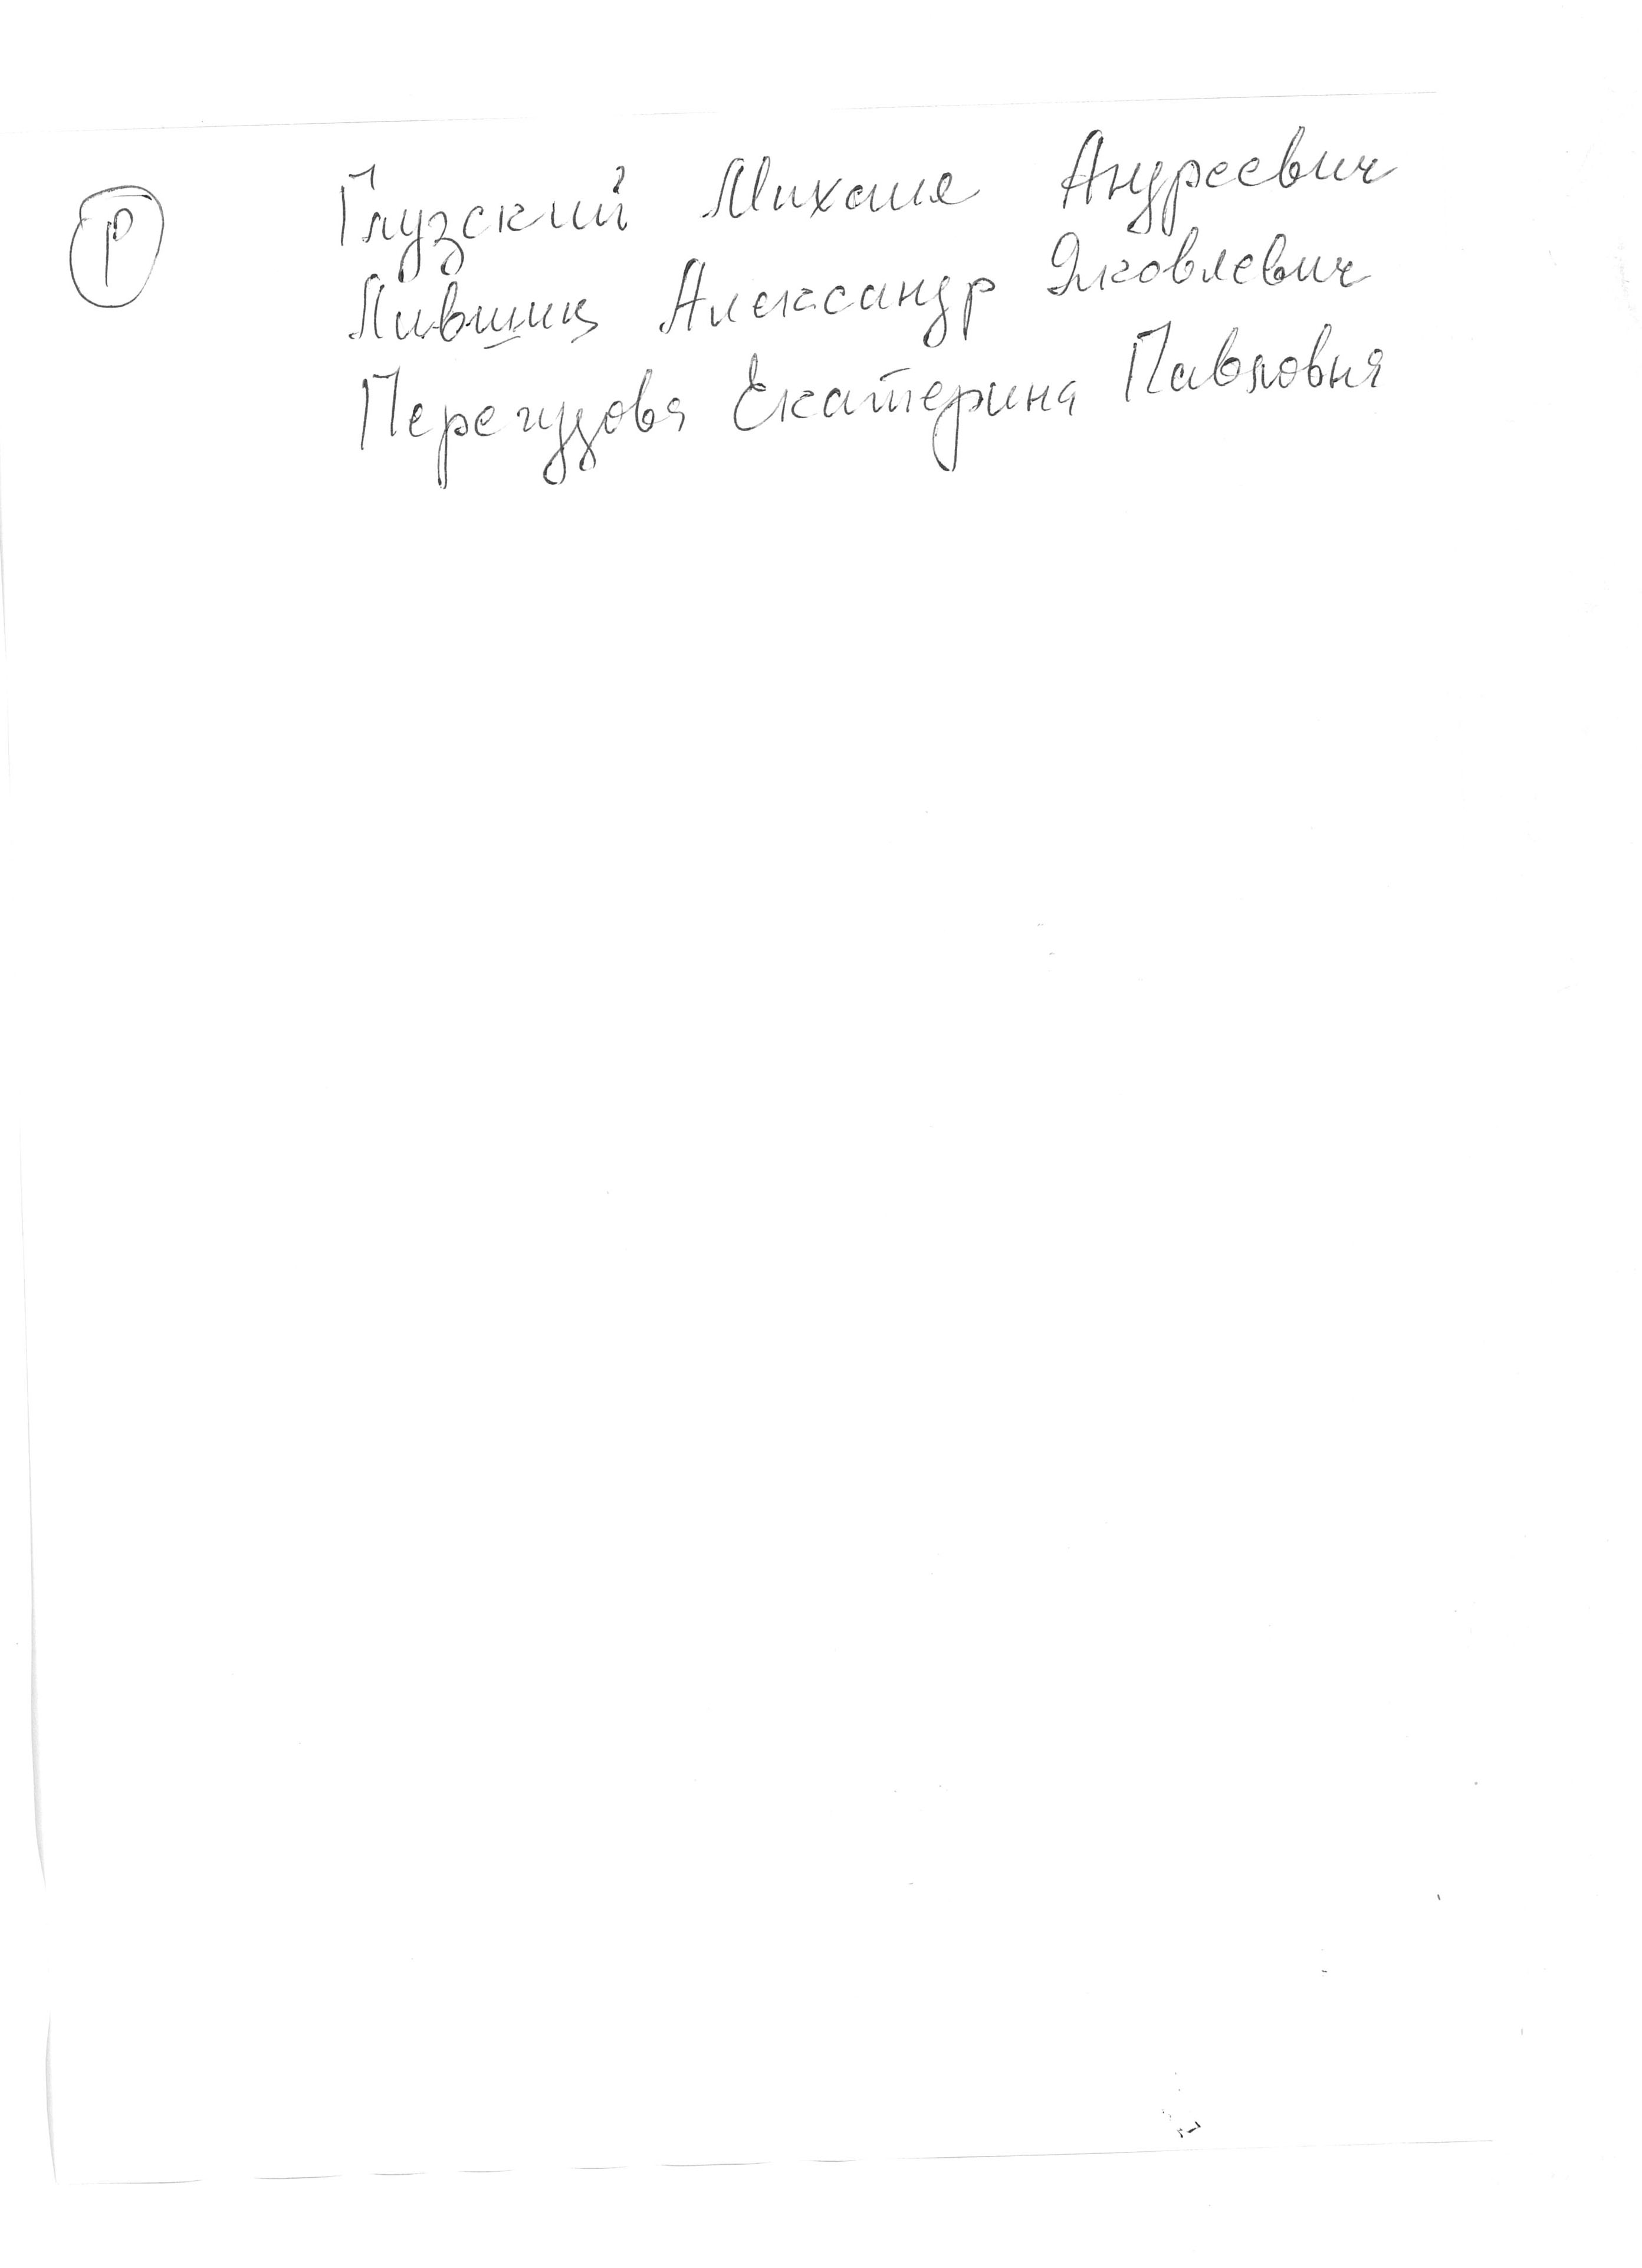 Р
Глузский Михаил Андреевич
Лившиц Александр Яковлевич
Перегудова Екатерина Павловна